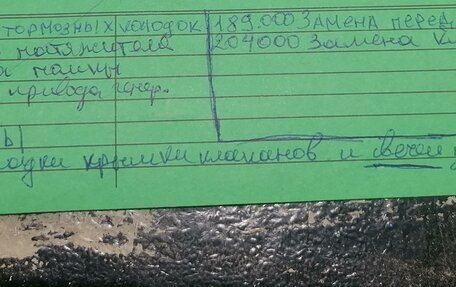 тормозных колодок
натяжителя
помпы
привода генер.
189.000 Замена перед
204000 Замена
ы
крышки клапанов и свечей